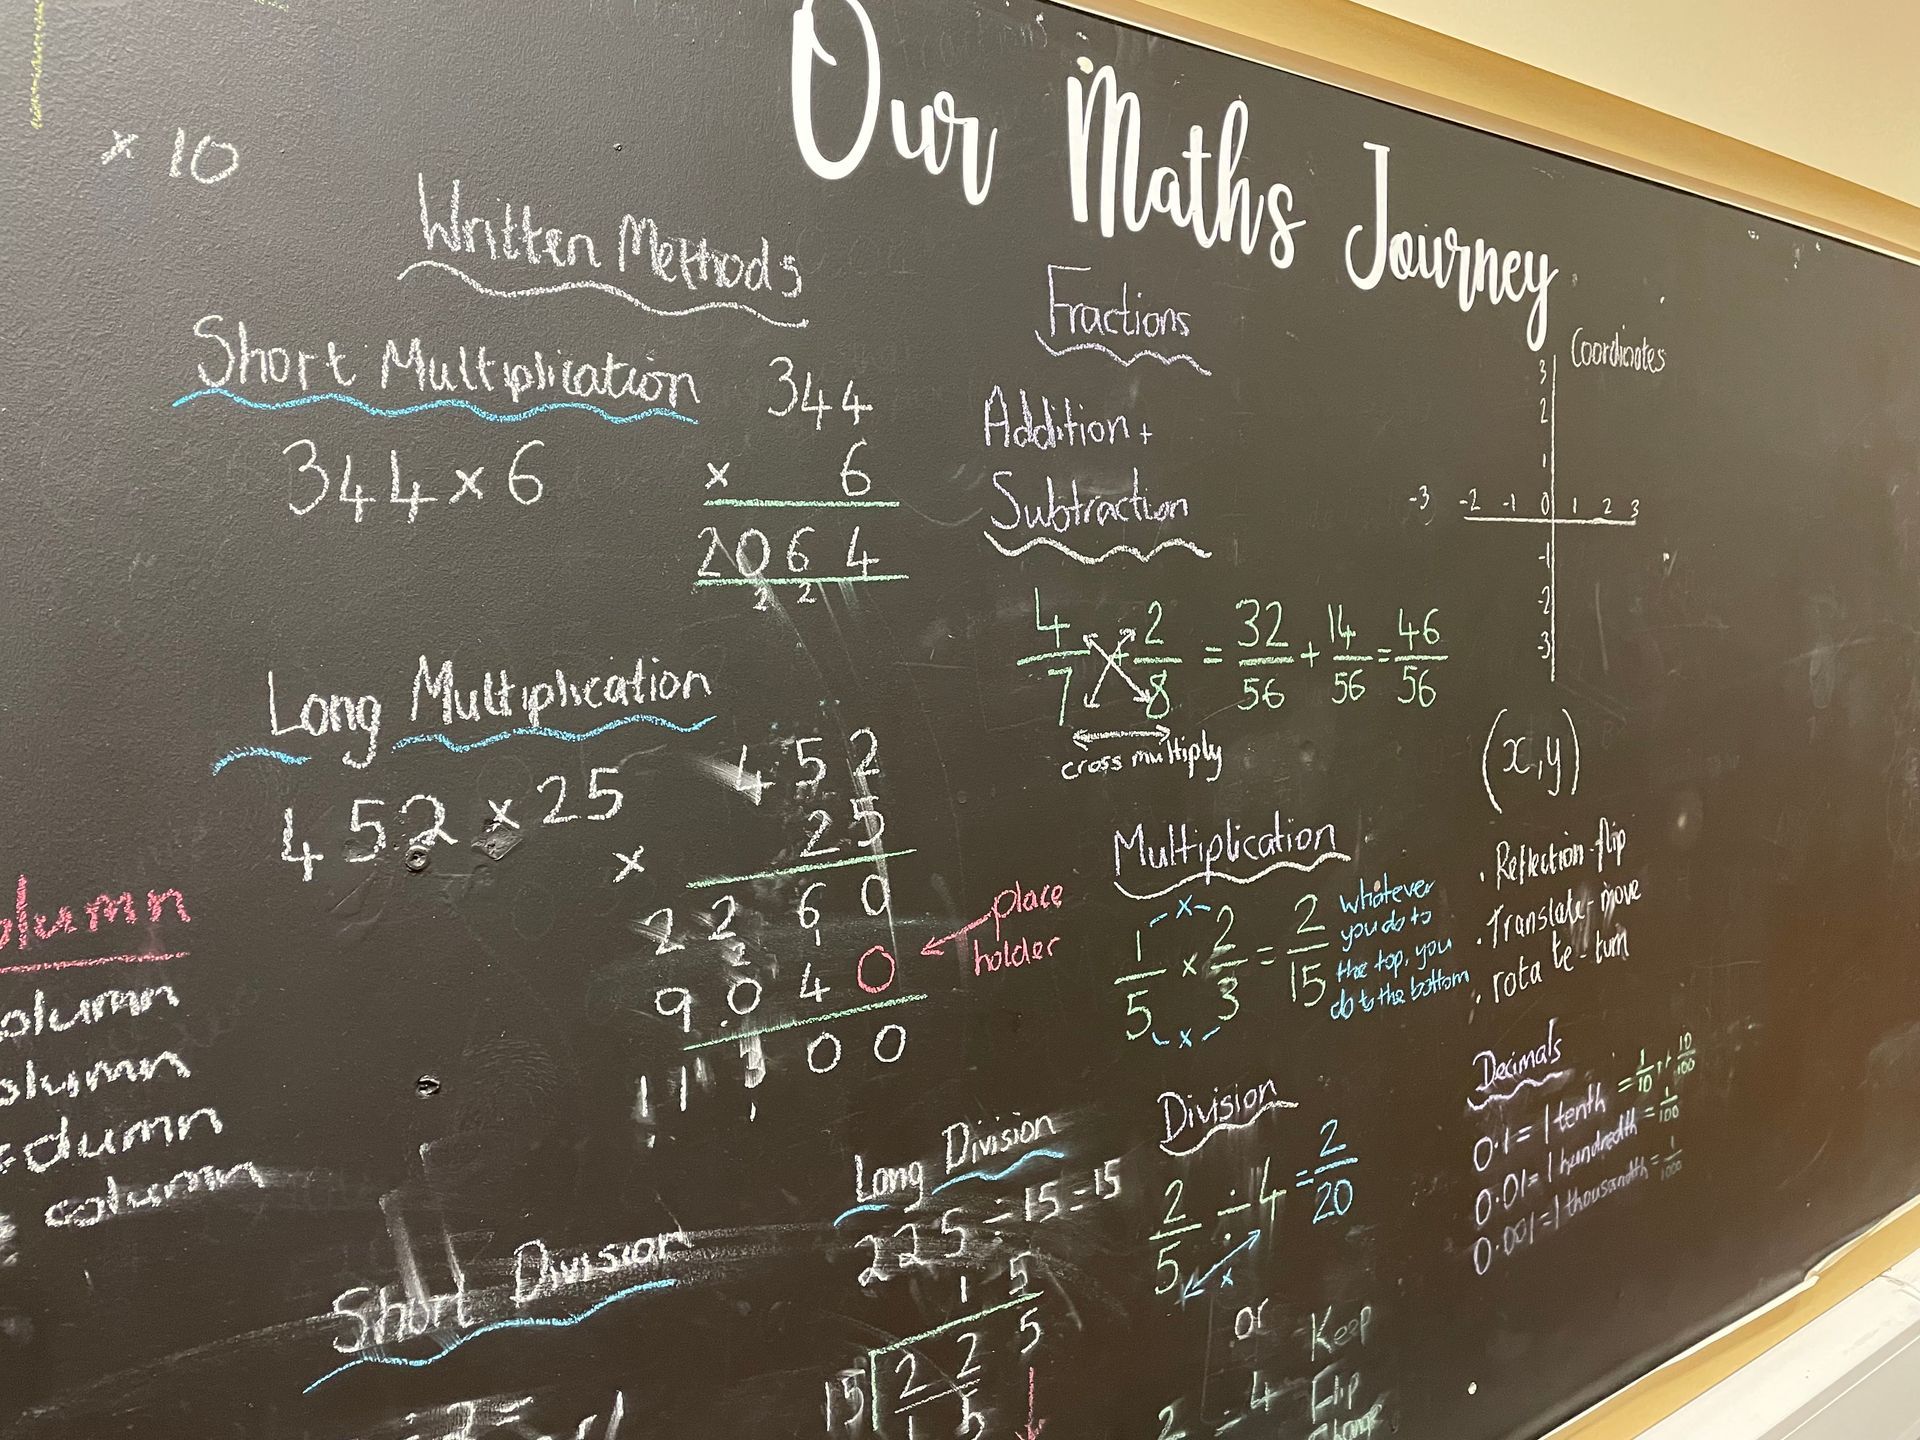 Our Maths Journey
× 10
Written Methods
Short Multiplication
344 × 6
344
× 6
2064
2 2
Long Multiplication
452 × 25
452
× 25
2260
2 1
9040
place
holder
11300
1 1
column
column
column
column
Short Division
Long Division
225 ÷ 15 = 15
15
15 225
15
Fractions
Addition +
Subtraction
4/7 + 2/8 = 32/56 + 14/56 = 46/56
cross multiply
Multiplication
× 
1/5 × 2/3 = 2/15
×
whatever
you do to
the top, you
do to the bottom
Division
2/5 ÷ 4 = 2/20
×
or
Keep
Flip
Change
2 ÷ 4
Coordinates
3
2
1
-3 -2 -1 0 1 2 3
-1
-2
-3
(x,y)
· Reflection-flip
· Translate-move
· rotate-turn
Decimals
0.1 = 1 tenth = 1/10 10/100
0.01 = 1 hundredth = 1/100
0.001 = 1 thousandth = 1/1000